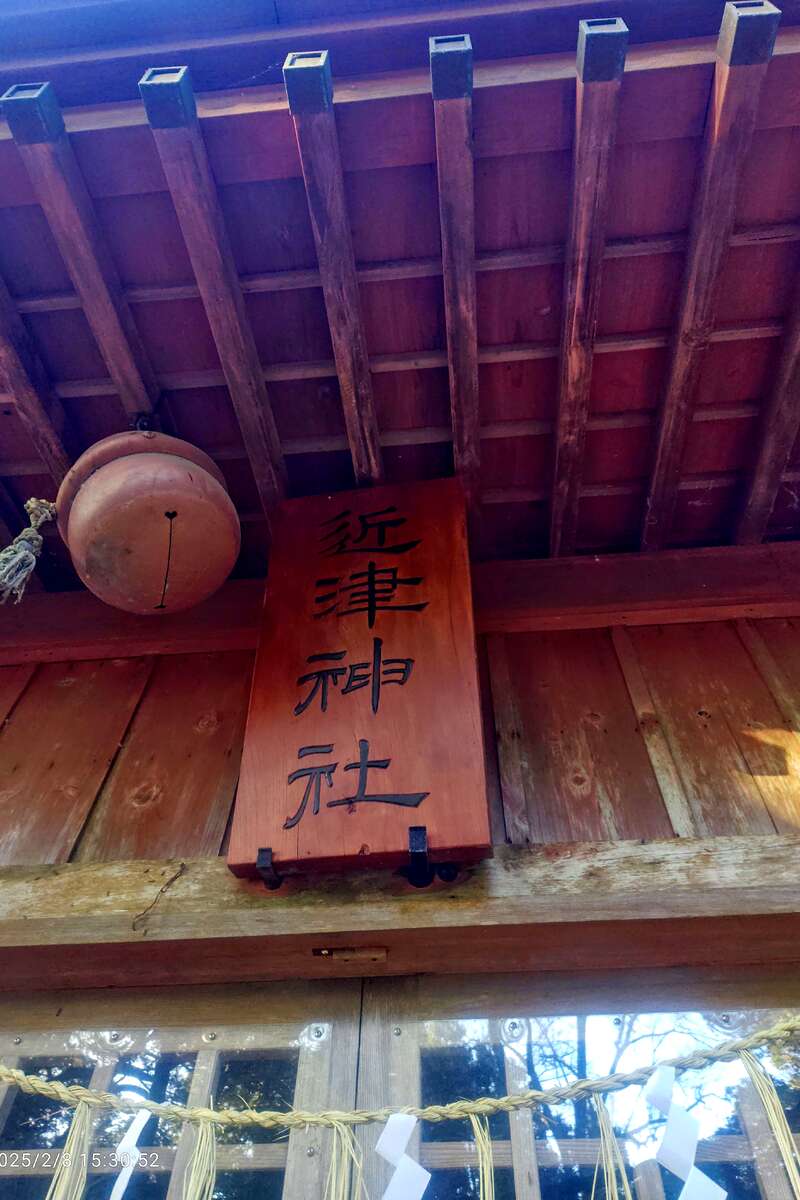 近津神社
025/2/8 15:30:52